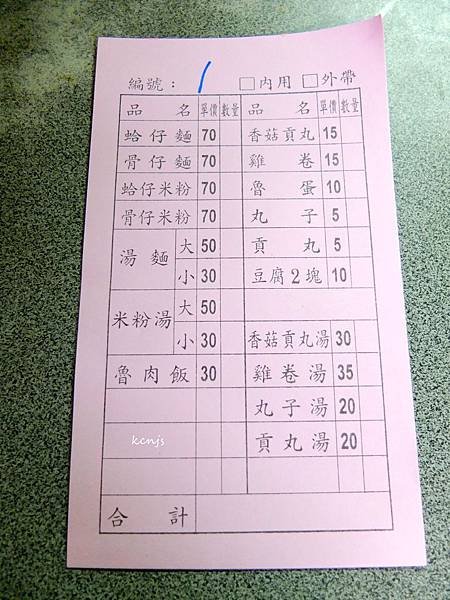 編號： 1 □內用 □外帶
品名 單價 數量 品名 單價 數量
蛤仔麵 70 香菇貢丸 15
骨仔麵 70 雞卷 15
蛤仔米粉 70 魯蛋 10
骨仔米粉 70 丸子 5
湯麵 大 50 貢丸 5
小 30 豆腐2塊 10
米粉湯 大 50
小 30 香菇貢丸湯 30
魯肉飯 30 雞卷湯 35
丸子湯 20
kcnjs 貢丸湯 20
合計